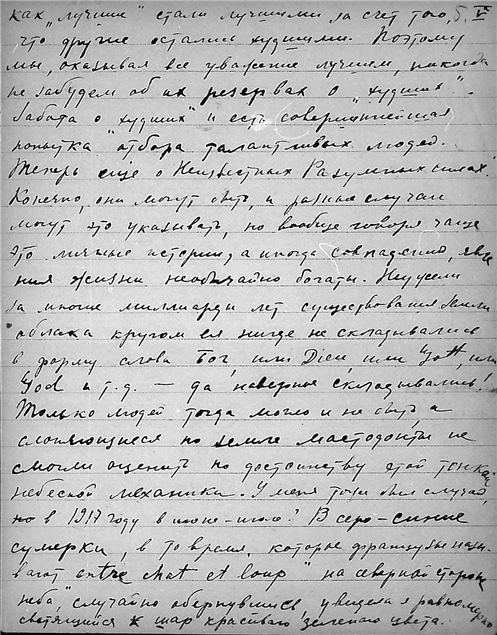 как „лучшие" стали лучшими за счет того, 5. V
что другие остались худшими. Поэтому
мы, оказывая все уважение лучшим, никогда
не забудем об их резервах о "худших".
Забота о "худших" и есть совершеннейшая
попытка отбора талантливых людей.
Теперь еще о Неизвестных Разумных силах.
Конечно, они могут быть, и разные случаи
могут это указывать, но вообще говоря чаще
это личные истории, а иногда совпадение, явле
ния жизни необычайно богаты. Неужели
за многие миллиарды лет существования Земли
облака кругом ея нигде не складывались
в форму слова Бог, или Dieu, или Gott, или
God и т.д. — да, наверное складывались!
Только людей тогда могло и не быть, а
слоняющиеся по земле мастодонты не
смогли оценить по достоинству этой тонкой
небесной механики. У меня тоже был случай,
но в 1917 году в июне-июле? В серо-синие
сумерки, в то время, которое французы назы
вают entre chat et loup" на северной стороне
неба, случайно обернувшись, увидела я равномерно
светящийся шар красивого зеленого цвета.